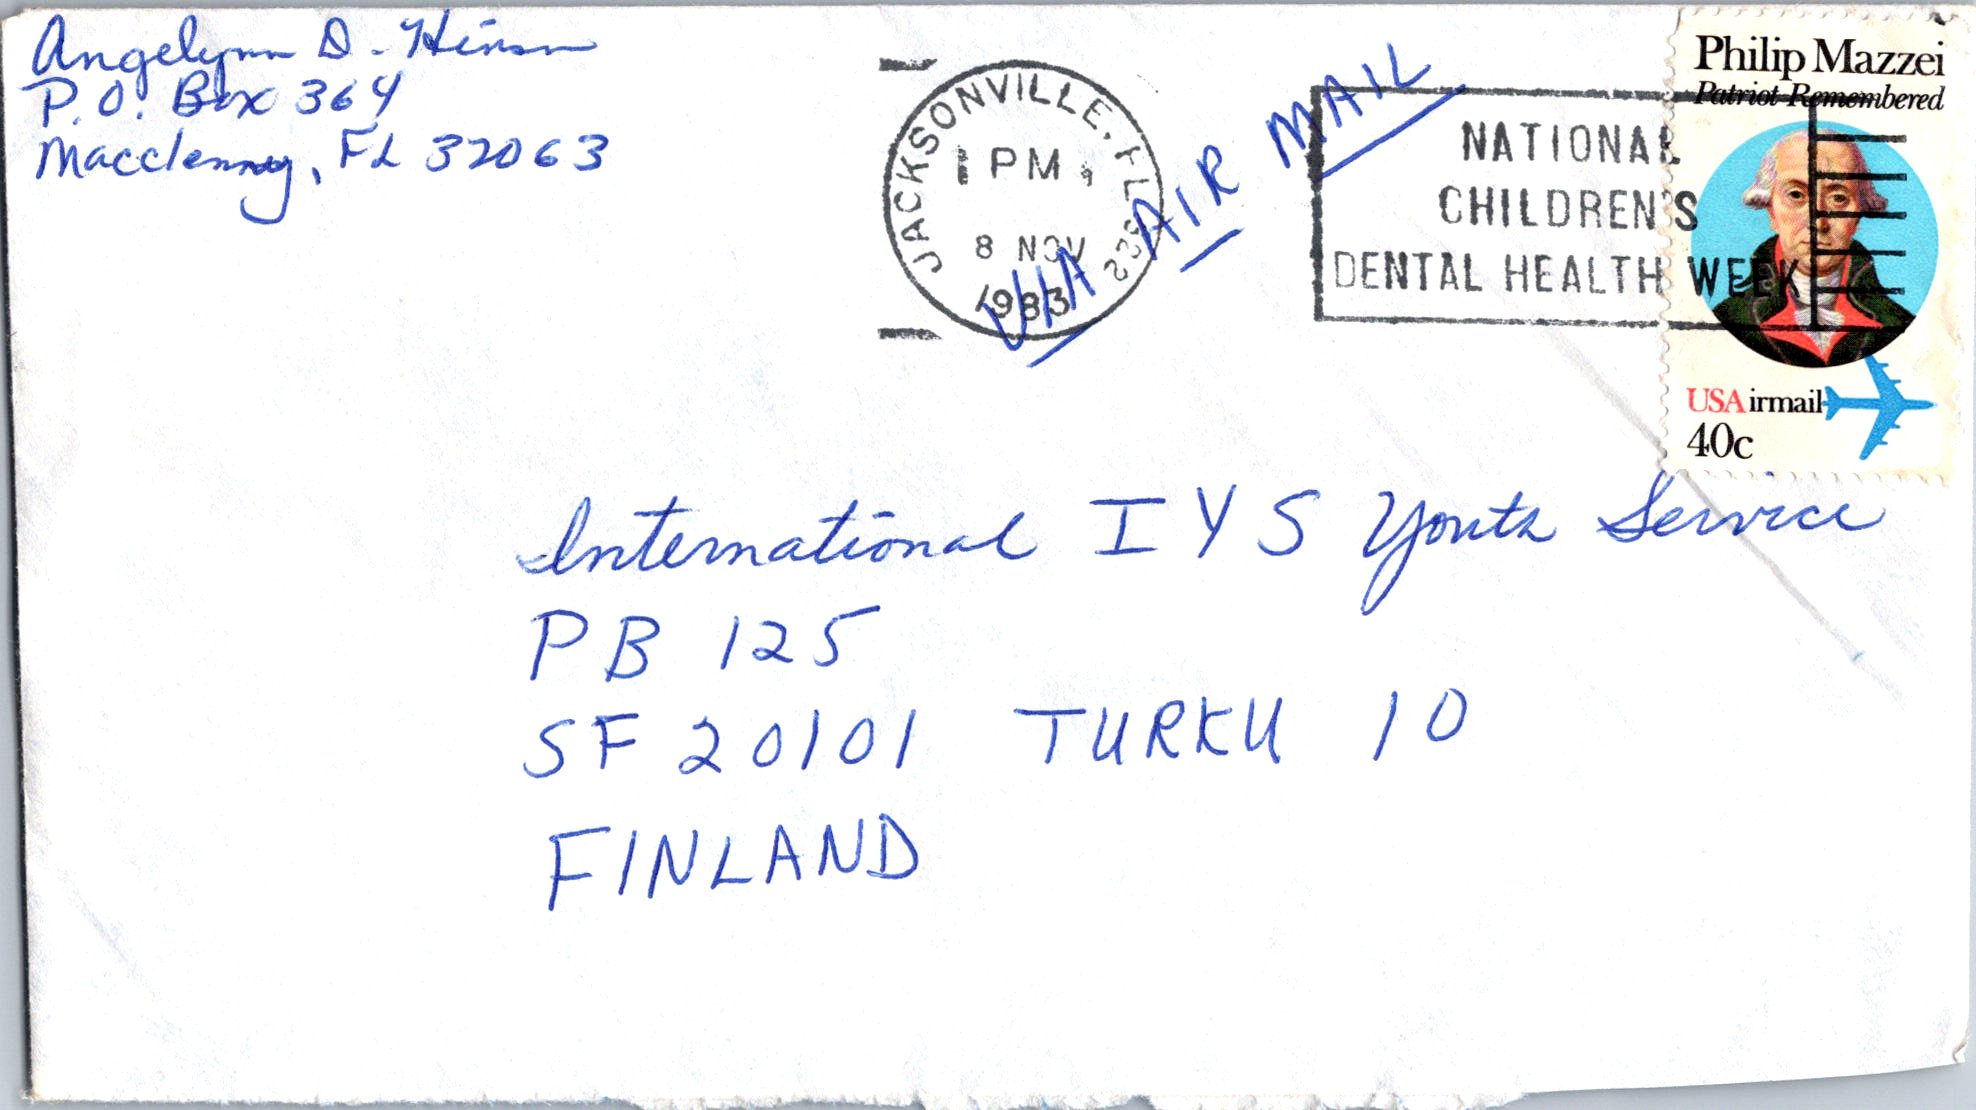 Angelynn D. Hinson
P.O. Box 364
Macclenny, FL 32063
JACKSONVILLE, FL 322
PM
8 NOV
1983
VIA AIR MAIL
NATIONAL
CHILDREN'S
DENTAL HEALTH WEEK
Philip Mazzei
Patriot Remembered
USAirmail
40c
International IYS Youth Service
PB 125
SF 20101 TURKU 10
FINLAND